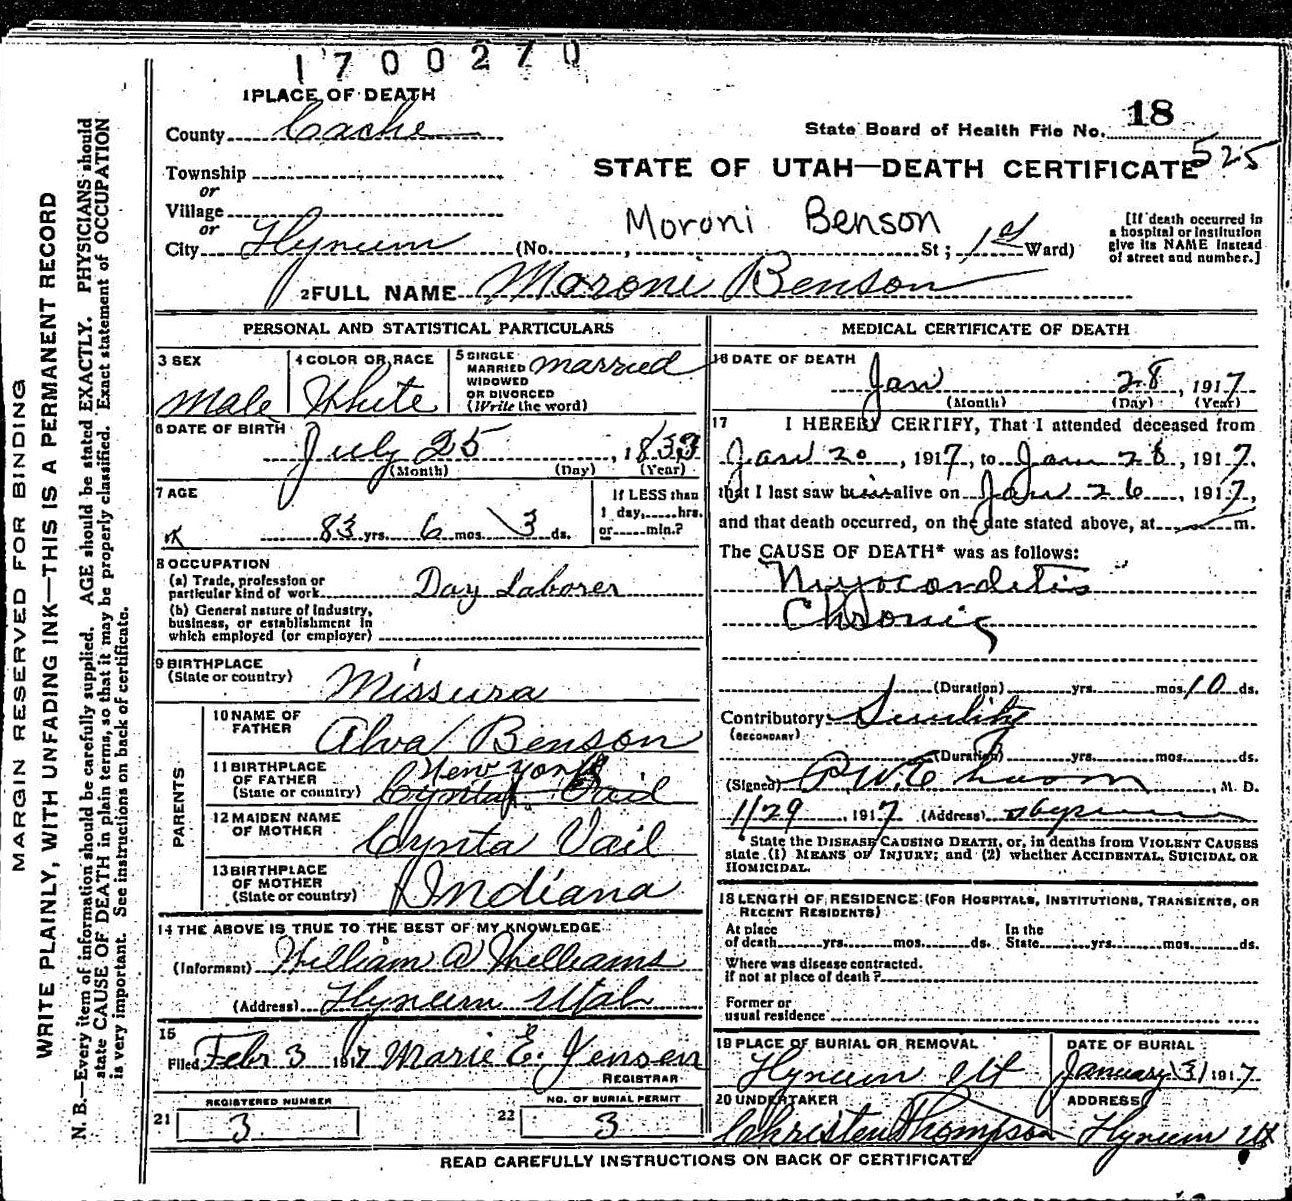 1700270
1 PLACE OF DEATH
County Cache
State Board of Health File No. 18
525
STATE OF UTAH—DEATH CERTIFICATE
Township
or
Village
or
Moroni Benson
City Hyrum (No. St; 1st Ward)
[If death occurred in a hospital or institution give its NAME instead of street and number.]
2 FULL NAME Moroni Benson
PERSONAL AND STATISTICAL PARTICULARS
3 SEX
Male
4 COLOR OR RACE
White
5 SINGLE MARRIED WIDOWED OR DIVORCED (Write the word)
married
6 DATE OF BIRTH
July 25, 1833
(Month) (Day) (Year)
7 AGE
83 yrs. 6 mos. 3 ds.
If LESS than
1 day, hrs.
or min.?
8 OCCUPATION
(a) Trade, profession or
particular kind of work Day Laborer
(b) General nature of industry,
business, or establishment in
which employed (or employer)
9 BIRTHPLACE
(State or country) Missura
PARENTS
10 NAME OF FATHER
Alva Benson
11 BIRTHPLACE OF FATHER (State or country)
New York
Cynta Vail
12 MAIDEN NAME OF MOTHER
Cynta Vail
13 BIRTHPLACE OF MOTHER (State or country)
Indiana
14 THE ABOVE IS TRUE TO THE BEST OF MY KNOWLEDGE
(Informant) William D Williams
(Address) Hyrum Utah
15
Filed Febr 3 1917 Marie E. Jensen
REGISTRAR
REGISTERED NUMBER
21 3
NO. OF BURIAL PERMIT
22 3
MEDICAL CERTIFICATE OF DEATH
16 DATE OF DEATH
Jan 28, 1917
(Month) (Day) (Year)
17 I HEREBY CERTIFY, That I attended deceased from
Jan 20, 1917, to Jan 28, 1917.
that I last saw him alive on Jan 26, 1917,
and that death occurred, on the date stated above, at m.
The CAUSE OF DEATH* was as follows:
Myocorditis
Chronic
(Duration) yrs. mos. 10 ds.
Contributory Senility
(SECONDARY)
(Duration) yrs. mos. ds.
(Signed) , M. D.
1/29, 1917 (Address) Hyrum
* State the DISEASE CAUSING DEATH, or, in deaths from VIOLENT CAUSES
state (1) MEANS OF INJURY; and (2) whether ACCIDENTAL, SUICIDAL OR
HOMICIDAL.
18 LENGTH OF RESIDENCE (FOR HOSPITALS, INSTITUTIONS, TRANSIENTS, OR
RECENT RESIDENTS)
At place In the
of death yrs. mos. ds. State yrs. mos. ds.
Where was disease contracted.
if not at place of death?
Former or
usual residence
19 PLACE OF BURIAL OR REMOVAL
Hyrum Ut
DATE OF BURIAL
January 31 1917
20 UNDERTAKER
Christen Thompson
ADDRESS
Hyrum Ut
READ CAREFULLY INSTRUCTIONS ON BACK OF CERTIFICATE
MARGIN RESERVED FOR BINDING
WRITE PLAINLY, WITH UNFADING INK—THIS IS A PERMANENT RECORD
N. B.—Every item of information should be carefully supplied. AGE should be stated EXACTLY. PHYSICIANS should
state CAUSE OF DEATH in plain terms, so that it may be properly classified. Exact statement of OCCUPATION
is very important. See instructions on back of certificate.